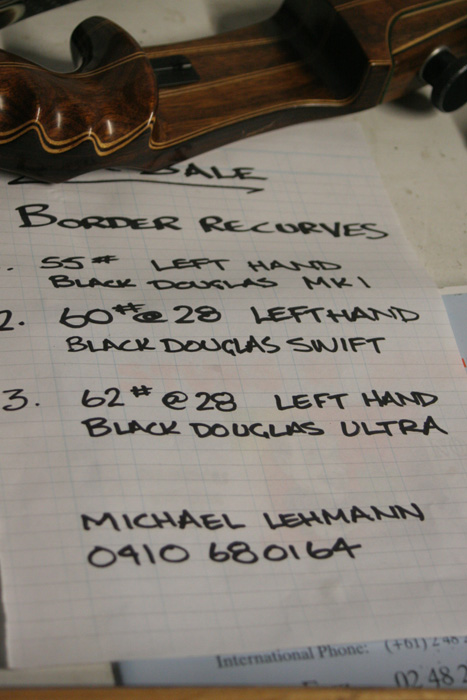 SALE
BORDER RECURVES
. 55# LEFT HAND
BLACK DOUGLAS MK1
2. 60#@28 LEFT HAND
BLACK DOUGLAS SWIFT
3. 62#@28 LEFT HAND
BLACK DOUGLAS ULTRA
MICHAEL LEHMANN
0410 680164
International Phone: (+61) 2 48
02 48 2